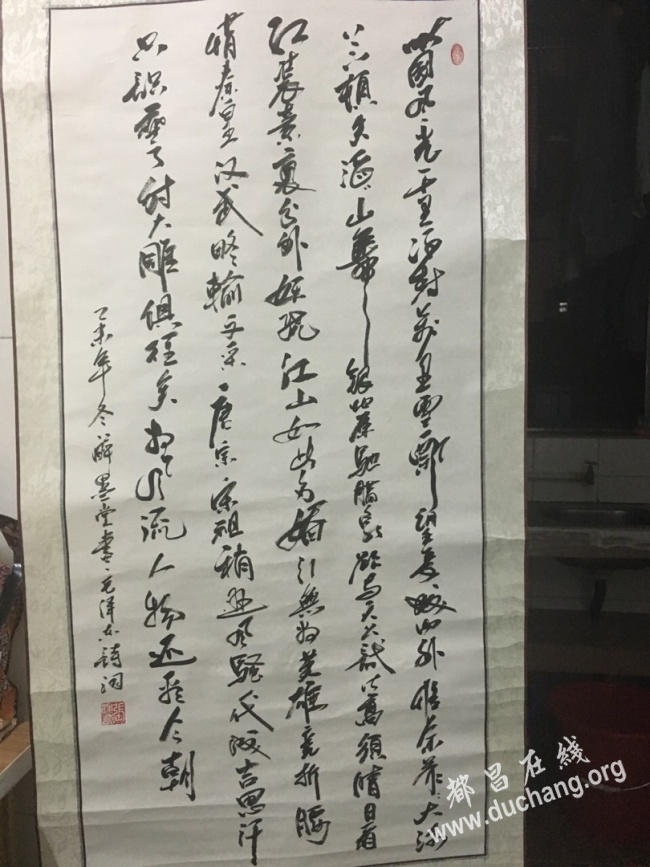 北國风光千里冰封萬里雪飘望长城内外惟余莽大河
上下頓失滔山舞银蛇原驰腊象欲与天公试比高須晴日看
红装素裹分外妖娆江山如此多娇引無数英雄竞折腰
惜秦皇汉武略輸文采唐宗宋祖稍逊风骚代成吉思汗
只识弯弓射大雕俱往矣数风流人物还看今朝
乙未年冬醉墨堂書毛泽东詩词
都昌在线
www.duchang.org